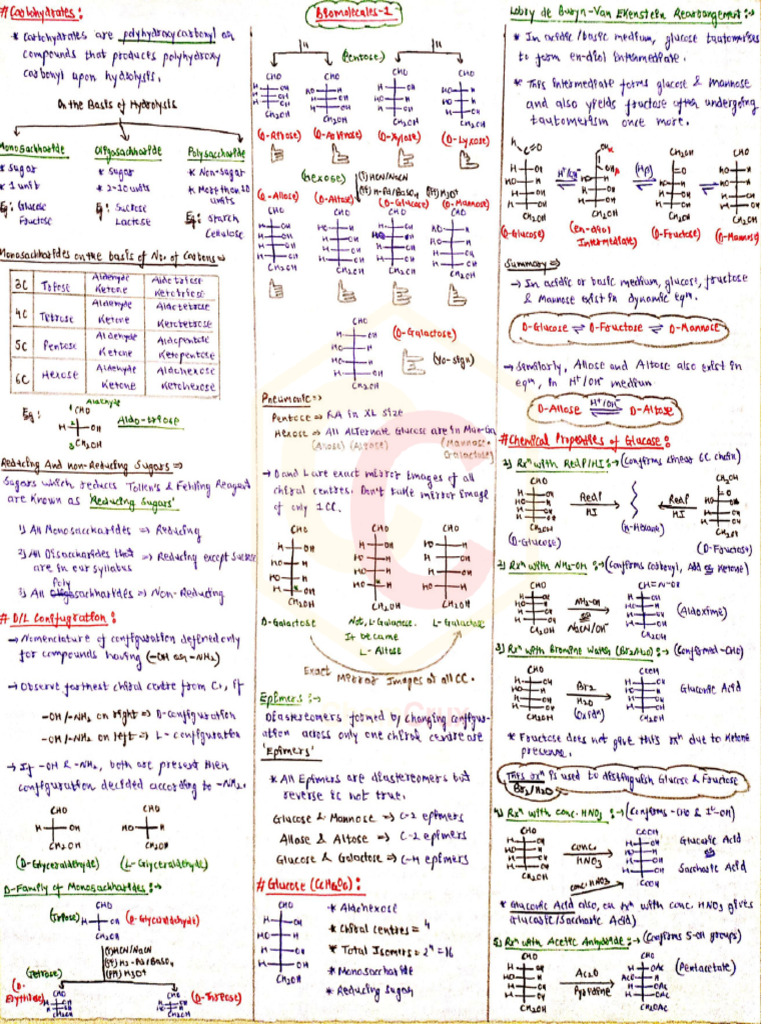 Biomolecules-1
# Carbohydrates :
* Carbohydrates are polyhydroxycarbonyl or
compounds that produces polyhydroxy
carbonyl upon hydrolysis.
On the Basis of Hydrolysis
Monosaccharide
* Sugar
* 1 unit
Eg: Glucose
Fructose
Oligosaccharide
* Sugar
* 2-10 units
Eg: Sucrose
Lactose
Polysaccharide
* Non-sugar
* More than 10
units
Eg: Starch
Cellulose
Monosaccharides on the basis of No. of carbons ⇒
3C Triose Aldehyde Aldotriose
Ketone Ketotriose
4C Tetrose Aldehyde Aldotetrose
Ketone Ketotetrose
5C Pentose Aldehyde Aldopentose
Ketone Ketopentose
6C Hexose Aldehyde Aldohexose
Ketone Ketohexose
Aldehyde
Eg: 1 CHO
H 2 OH Aldo-triose
3 CH2OH
Reducing And non-Reducing Sugars ⇒
Sugars which reduces Tollen's & Fehling Reagent
are known as 'Reducing Sugars'
1) All Monosaccharides ⇒ Reducing
2) All Disaccharides that ⇒ Reducing except Sucrose
are in our syllabus
3) All Polysaccharides ⇒ Non-Reducing
# D/L Configuration :
→ Nomenclature of configuration defined only
for compounds having (-OH or -NH2)
→ Observe farthest chiral centre from C1, if
-OH/-NH2 on right ⇒ D-configuration
-OH/-NH2 on left ⇒ L-configuration
→ If -OH & -NH2, both are present then
configuration decided according to -NH2.
CHO CHO
H OH HO H
CH2OH CH2OH
(D-Glyceraldehyde) (L-Glyceraldehyde)
D-Family of Monosaccharides :→
CHO
(Triose) H OH (D-Glyceraldehyde)
CH2OH
(i) HCN/NaCN
(ii) H2-Pd/BaSO4
(iii) H3O+
(Tetrose)
(D-Erythrose) (D-Threose)
(Pentose)
CHO CHO CHO CHO
CH2OH CH2OH CH2OH CH2OH
(D-Ribose) (D-Arabinose) (D-Xylose) (D-Lyxose)
(Hexose) (i) HCN/NaCN
(ii) H2-Pd/BaSO4 (iii) H3O+
(D-Allose) (D-Altose) (D-Glucose) (D-Mannose)
CHO CHO CHO CHO
CH2OH CH2OH CH2OH CH2OH
CHO
H OH (D-Galactose)
HO H
HO H (Yo-sign)
H OH
CH2OH
Pneumonic :→
Pentose ⇒ RA in XL size
Hexose ⇒ All Alternate Glucose are in Man-Ga
(Allose) (Altose) (Mannose + Galactose)
→ D and L are exact mirror images of all
chiral centres. Don't take mirror image
of only 1 CC.
CHO CHO CHO
CH2OH CH2OH CH2OH
D-Galactose Not, L-Galactose. L-Galactose
It became
L-Altose
Exact Mirror Images at all CC.
Epimers :→
Diastereomers formed by changing configur-
ation across only one chiral centre are
'Epimers'
* All Epimers are diastereomers but
reverse is not true.
Glucose & Mannose ⇒ C-2 epimers
Allose & Altose ⇒ C-2 epimers
Glucose & Galactose ⇒ C-4 epimers
# Glucose (C6H12O6) :
CHO
H OH
HO H
H OH
H OH
CH2OH
* Aldohexose
* Chiral centres = 4
* Total Isomers = 2^n = 16
* Monosaccharide
* Reducing Sugar
Lobry de Bruyn-Van Ekenstein Rearrangement :→
* In acidic/basic medium, glucose tautomerises
to form en-diol intermediate.
* This intermediate forms glucose & mannose
and also yields fructose after undergoing
tautomerism once more.
(D-Glucose) (en-diol Intermediate) (D-Fructose) (D-Mannose)
Summary ⇒
→ In acidic or basic medium, glucose, fructose
& Mannose exist in dynamic eqn.
D-Glucose ⇌ D-Fructose ⇌ D-Mannose
→ Similarly, Allose and Altose also exist in
eqn, in H+/OH- medium
D-Allose H+/OH- ⇌ D-Altose
# Chemical Properties of Glucose :
1) Rxn with Red P/HI :→ (Confirms linear 6C chain)
CHO
CH2OH
(D-Glucose)
Red P
HI
(n-Hexane)
Red P
HI
CH2OH
(D-Fructose)
2) Rxn with NH2-OH :→ (Confirms carbonyl, Ald or Ketone)
CHO
CH2OH
NH2-OH
or
NaCN/OH-
CH=N-OH
(Aldoxime)
CH2OH
3) Rxn with Bromine Water (Br2/H2O) :→ (Confirmed -CHO)
CHO
CH2OH
Br2
H2O
(Oxidn)
COOH
Gluconic Acid
CH2OH
* Fructose does not give this rxn due to ketone
presence.
This rxn is used to distinguish Glucose & Fructose
Br2/H2O
4) Rxn with conc. HNO3 :→ (Confirms -CHO & 1°-OH)
CHO
CH2OH
conc.
HNO3
COOH
Glucaric Acid
or
Saccharic Acid
COOH
conc. HNO3
* Gluconic Acid also, on rxn with conc. HNO3 gives
Glucaric/Saccharic Acid)
5) Rxn with Acetic Anhydride :→ (Confirms 5-OH groups)
CHO
CH2OH
Ac2O
Pyridine
CHO
OAc
AcO
OAc
OAc
CH2OAc
(Pentacetate)